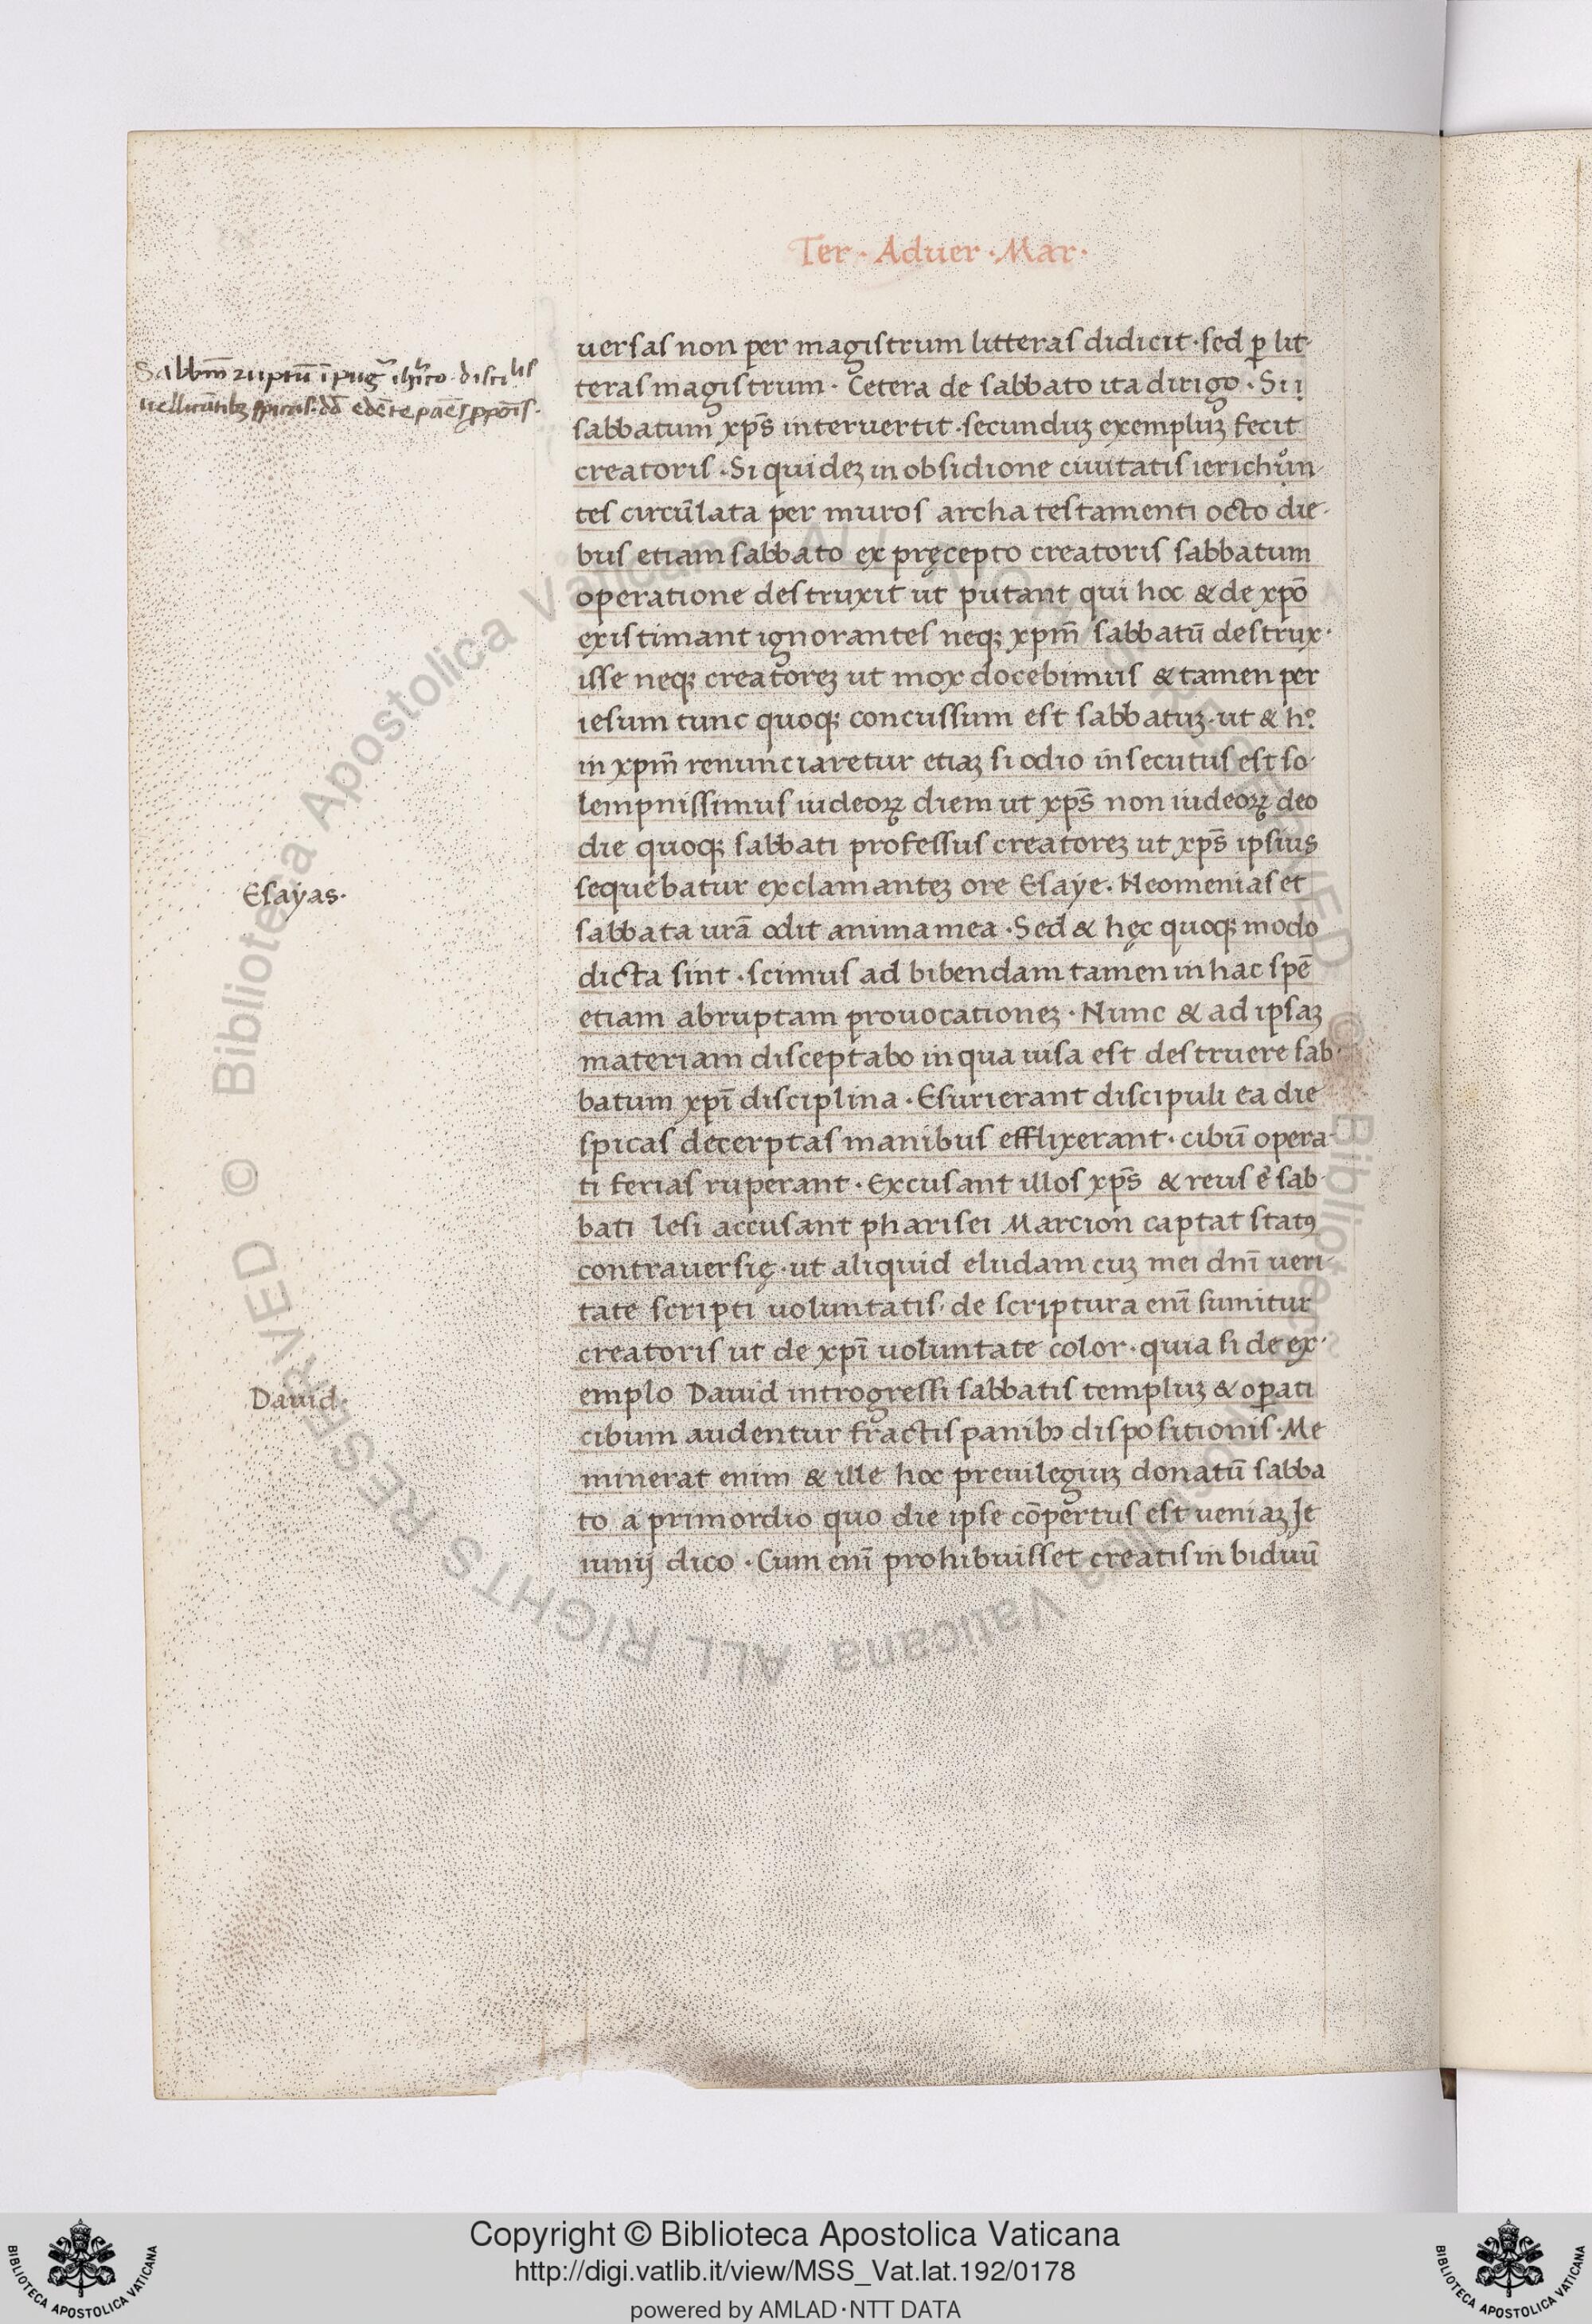 Ter · Aduer · Mar ·
uersas non per magistrum litteras didicit · sed ꝑ lit-
teras magistrum · Cetera de sabbato ita dirigo · Si
sabbatum xp̄s interuertit · secunduꝫ exempluꝫ fecit
creatoris · Siquideꝫ in obsidione ciuitatis
tes circūlata per muros archa testamenti octo die-
bus etiam sabbato ex pręcepto creatoris sabbatum
operatione destruxit ut putant qui hoc & de xp̄o
existimant ignorantes neqꝫ xpm̄ sabbatū destrux-
isse neqꝫ creatoreꝫ ut mox docebimus & tamen per
iesum tunc quoqꝫ concussum est sabbatuꝫ · ut & hº
in xpm̄ renunciaretur etiaꝫ si odio insecutus est so-
lempnissimus iudeoꝝ diem ut xp̄s non iudeoꝝ deo
die quoqꝫ sabbati professus creatoreꝫ ut xp̄s ipsius
sequebatur exclamanteꝫ ore Esaye · Neomenias et
sabbata urā odit anima mea · Sed & hęc quoqꝫ modo
dicta sint · scimus ad bibendam tamen in hac spē
etiam abruptam prouocationeꝫ · Nunc & ad ipsaꝫ
materiam disceptabo in qua uisa est destruere sab-
batum xpī disciplina · Esurierant discipuli ea die
spicas decerptas manibus efflixerant · cibū opera-
ti ferias ruperant · Excusant illos xp̄s & reus ē sab-
bati lesi accusant pharisei Marcion captat statꝰ
contrauersię · ut aliquid eludam cuꝫ mei dnī ueri-
tate scripti uoluntatis · de scriptura enī sumitur
creatoris ut de xpī uoluntate color · quia si de ex-
emplo Dauid introgressi sabbatis templuꝫ & oꝑati
cibum audentur fractis panibꝫ dispositionis · Me
minerat enim & ille hoc preuilegiuꝫ donatū sabba
to a primordio quo die ipse cōpertus est ueniaꝫ Ie
iunij dico · Cum enī prohibuisset creatis in biduū
Esayas ·
Dauid ·
© Biblioteca Apostolica Vaticana ALL RIGHTS RESERVED © Biblioteca Apostolica Vaticana ALL RIGHTS RESERVED
Copyright © Biblioteca Apostolica Vaticana
http://digi.vatlib.it/view/MSS_Vat.lat.192/0178
powered by AMLAD·NTT DATA
BIBLIOTECA APOSTOLICA VATICANA
BIBLIOTECA APOSTOLICA VATICANA